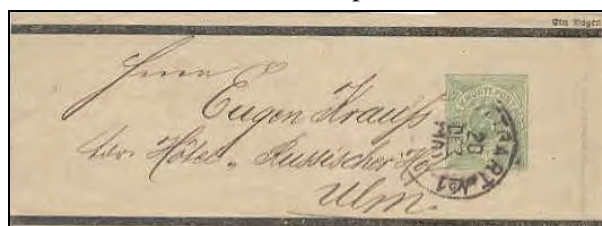 Ein Bogen
Herrn
Eugen Krauß
Hôtel „Russischer Hof
Ulm
K. WÜRTT. POST
TTGART No 1
20
DEZ